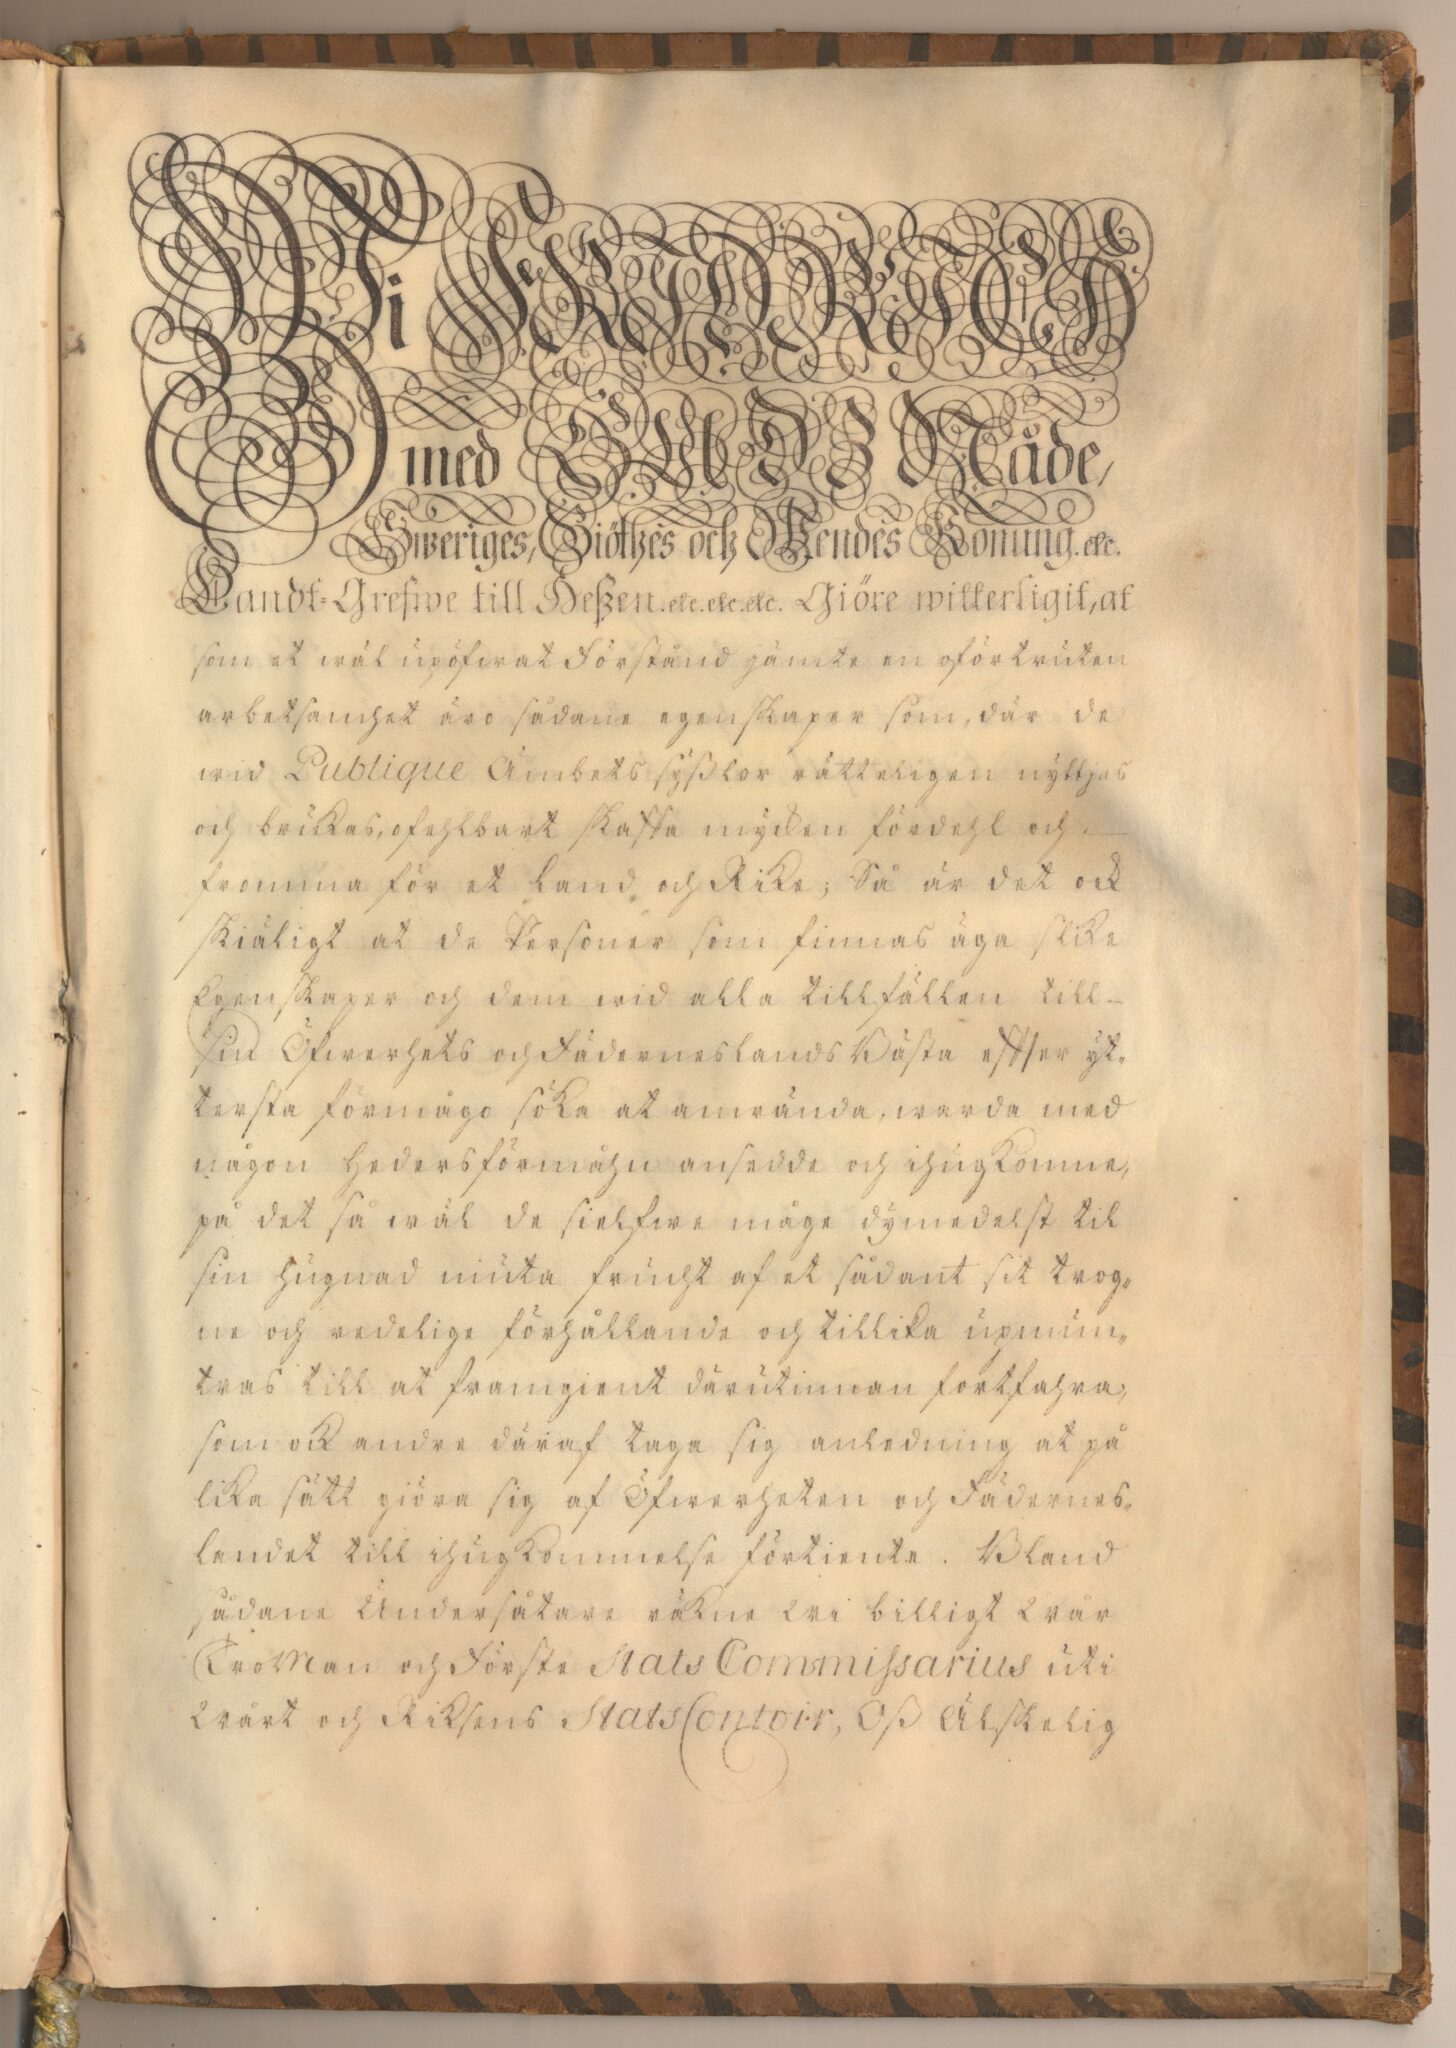 Wi FRIDRICH
med GUDZ Nåde,
Sweriges, Giöthes och Wendes Konung. etc.
Landt-Grefwe till Heßen. etc. etc. etc. Giöre witterligit, at
som et wäl upöfwat Förstånd jämte en oförtruten
arbetsamhet äro sådane egenskaper som, där de
wid Publique Ämbets syßlor rätteligen nyttjas
och brukas, ofehlbart skaffa mycken fördehl och
fromma för et Land och Rike; Så är det ock
skiäligt at de Personer som finnas äga slike
Egenskaper och dem wid alla tillfällen till
sin Öfwerhets och Fäderneslands Bästa effter yt-
tersta förmågo söka at anwända, warda med
någon Hedersförmåhn ansedde och ihugkomne,
på det så wäl de sielfwe måge dymedelst til
sin hugnad niuta frucht af et sådant sit trog-
ne och redelige förhållande och tillika upmun-
tras till at framgient därutinnan fortfahra,
som ock andre däraf taga sig anledning at på
lika sätt giöra sig af Öfwerheten och Fädernes-
landet till ihugkommelse förtiente. Bland
sådane Undersåtare räkne Wi billigt Wår
TroMan och Förste Stats Commissarius uti
Wårt och Riksens Stats Contoir, Oß Älskelig